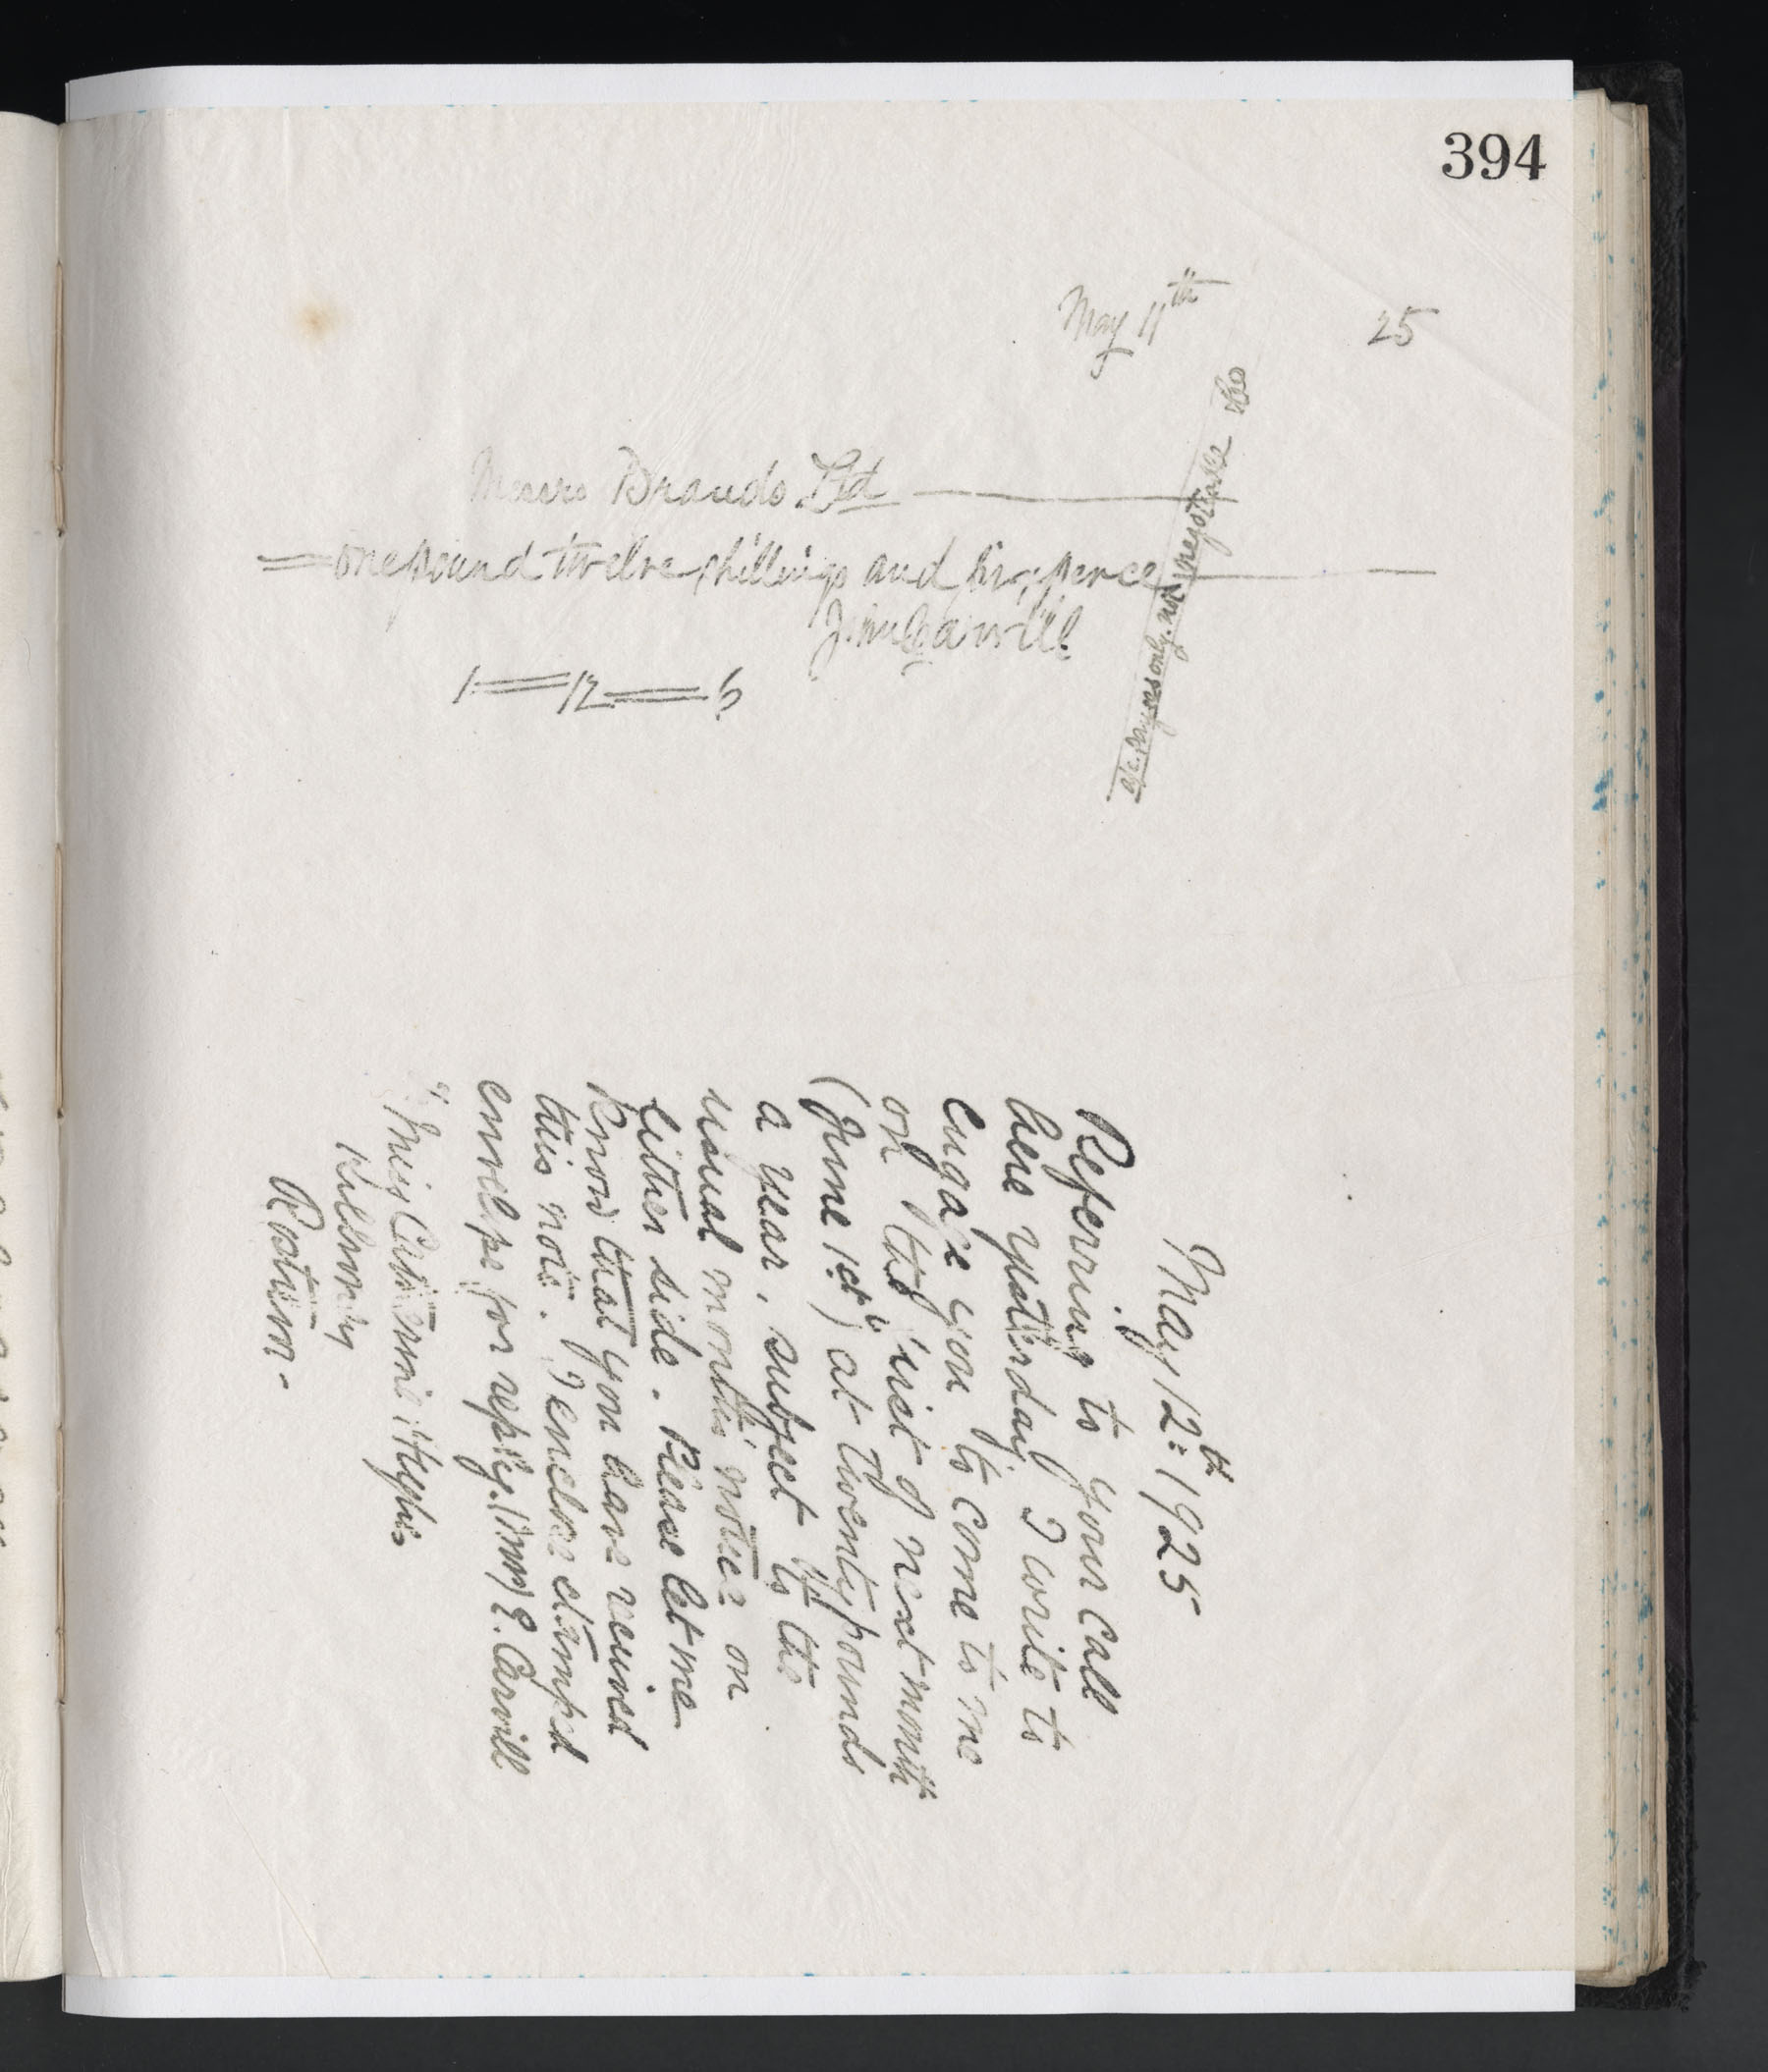 394
May 11th 25
Messrs Brands Ltd
one pound twelve shillings and sixpence
John Carvill
1 = 12 = 6
a/c payees only. not negotiable &Co
May 12th 1925
Referring to your call
here yesterday I write to
engage you to come to me
on the first of next month
(June 1st) at twenty pounds
a year, subject to the
usual months notice on
either side. Please let me
know that you have received
this note. I enclose stamped
envelope for reply. (Mrs) E. Carvill
Miss Catherine
Kilbroney
Rostrevor.